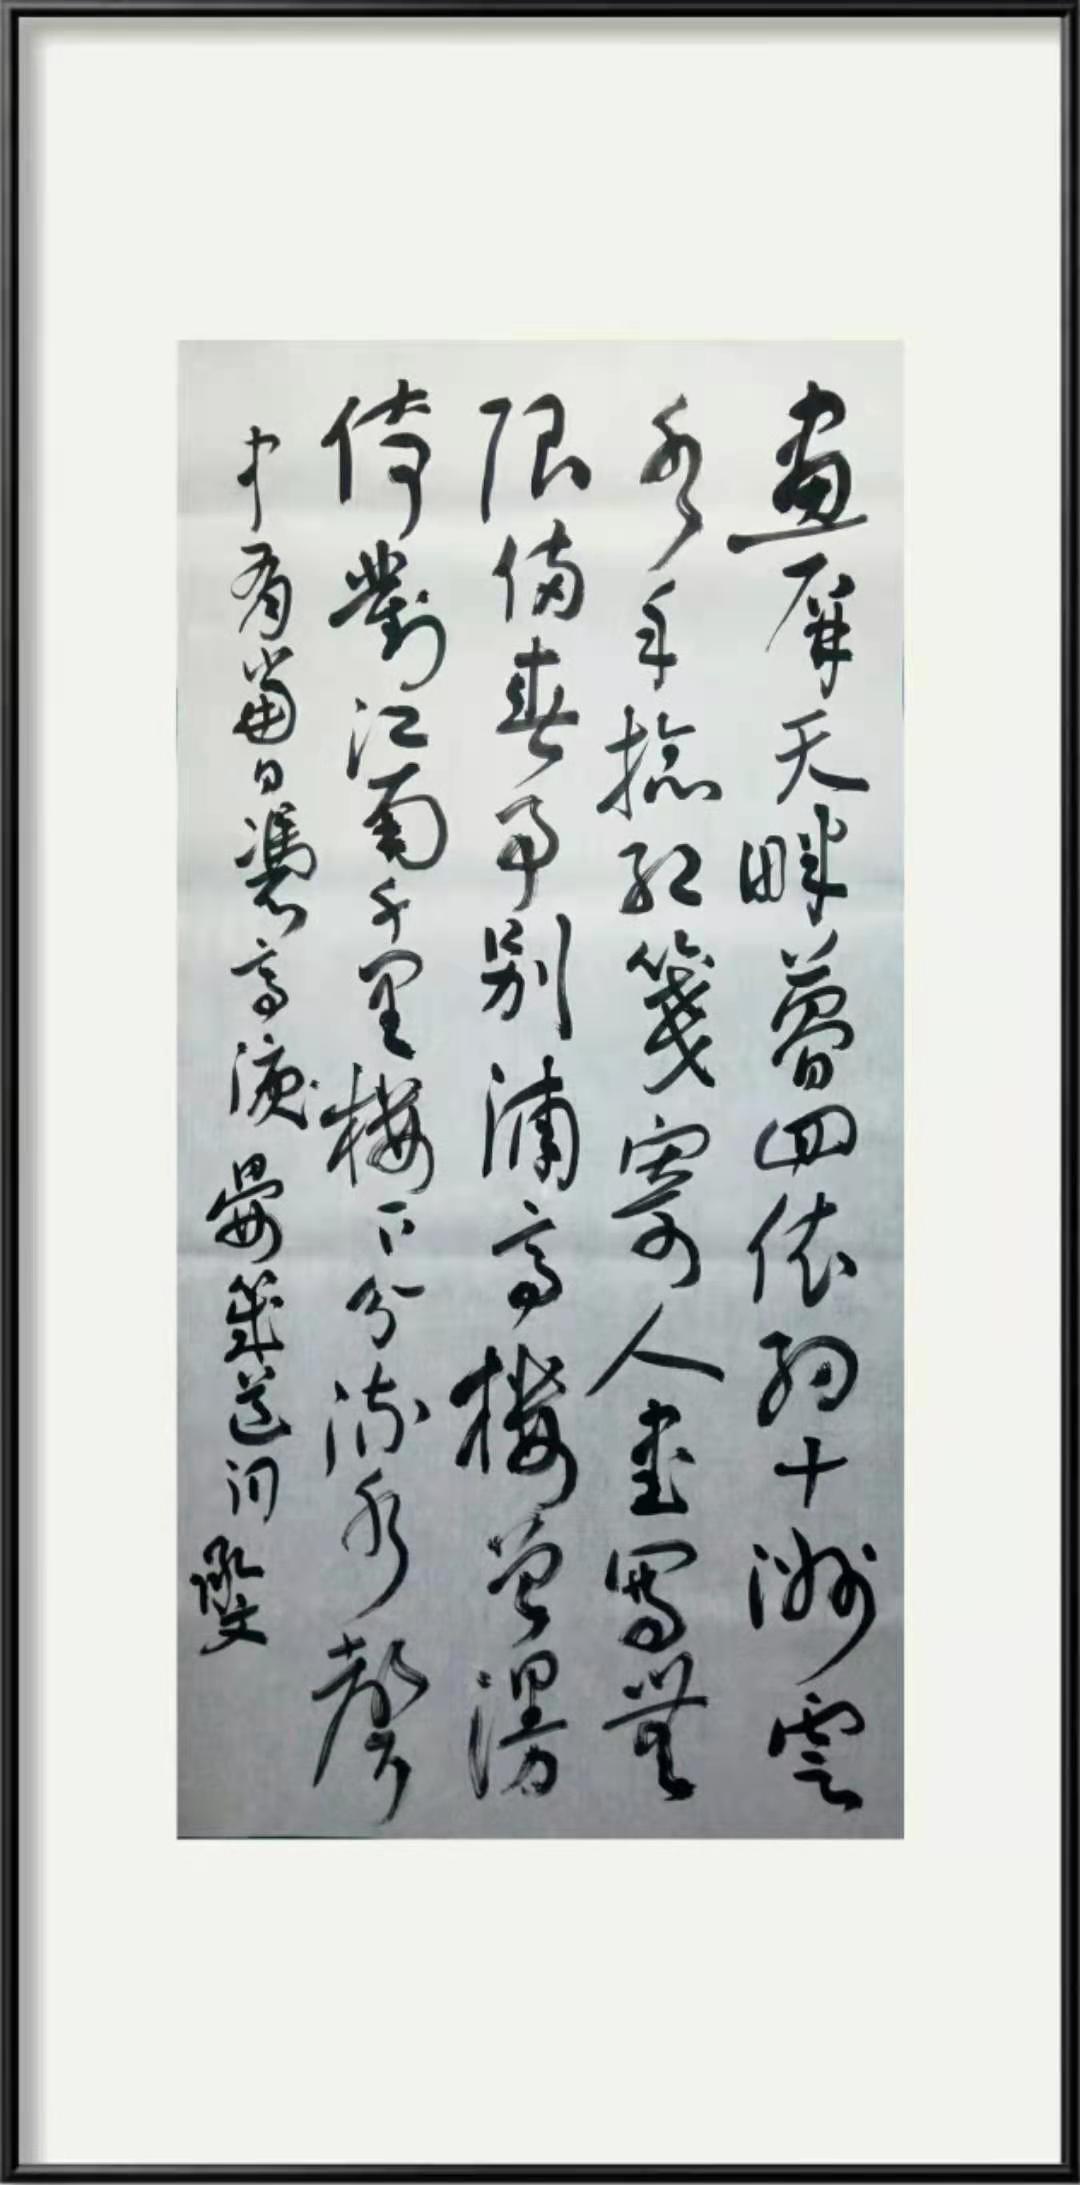 畫屏天畔夢回依約十洲雲
水手撚紅箋寄人書寫無
限傷春事別浦高樓曾漫
倚對江南千里樓下分流水聲
中有當日憑高淚 晏幾道詞